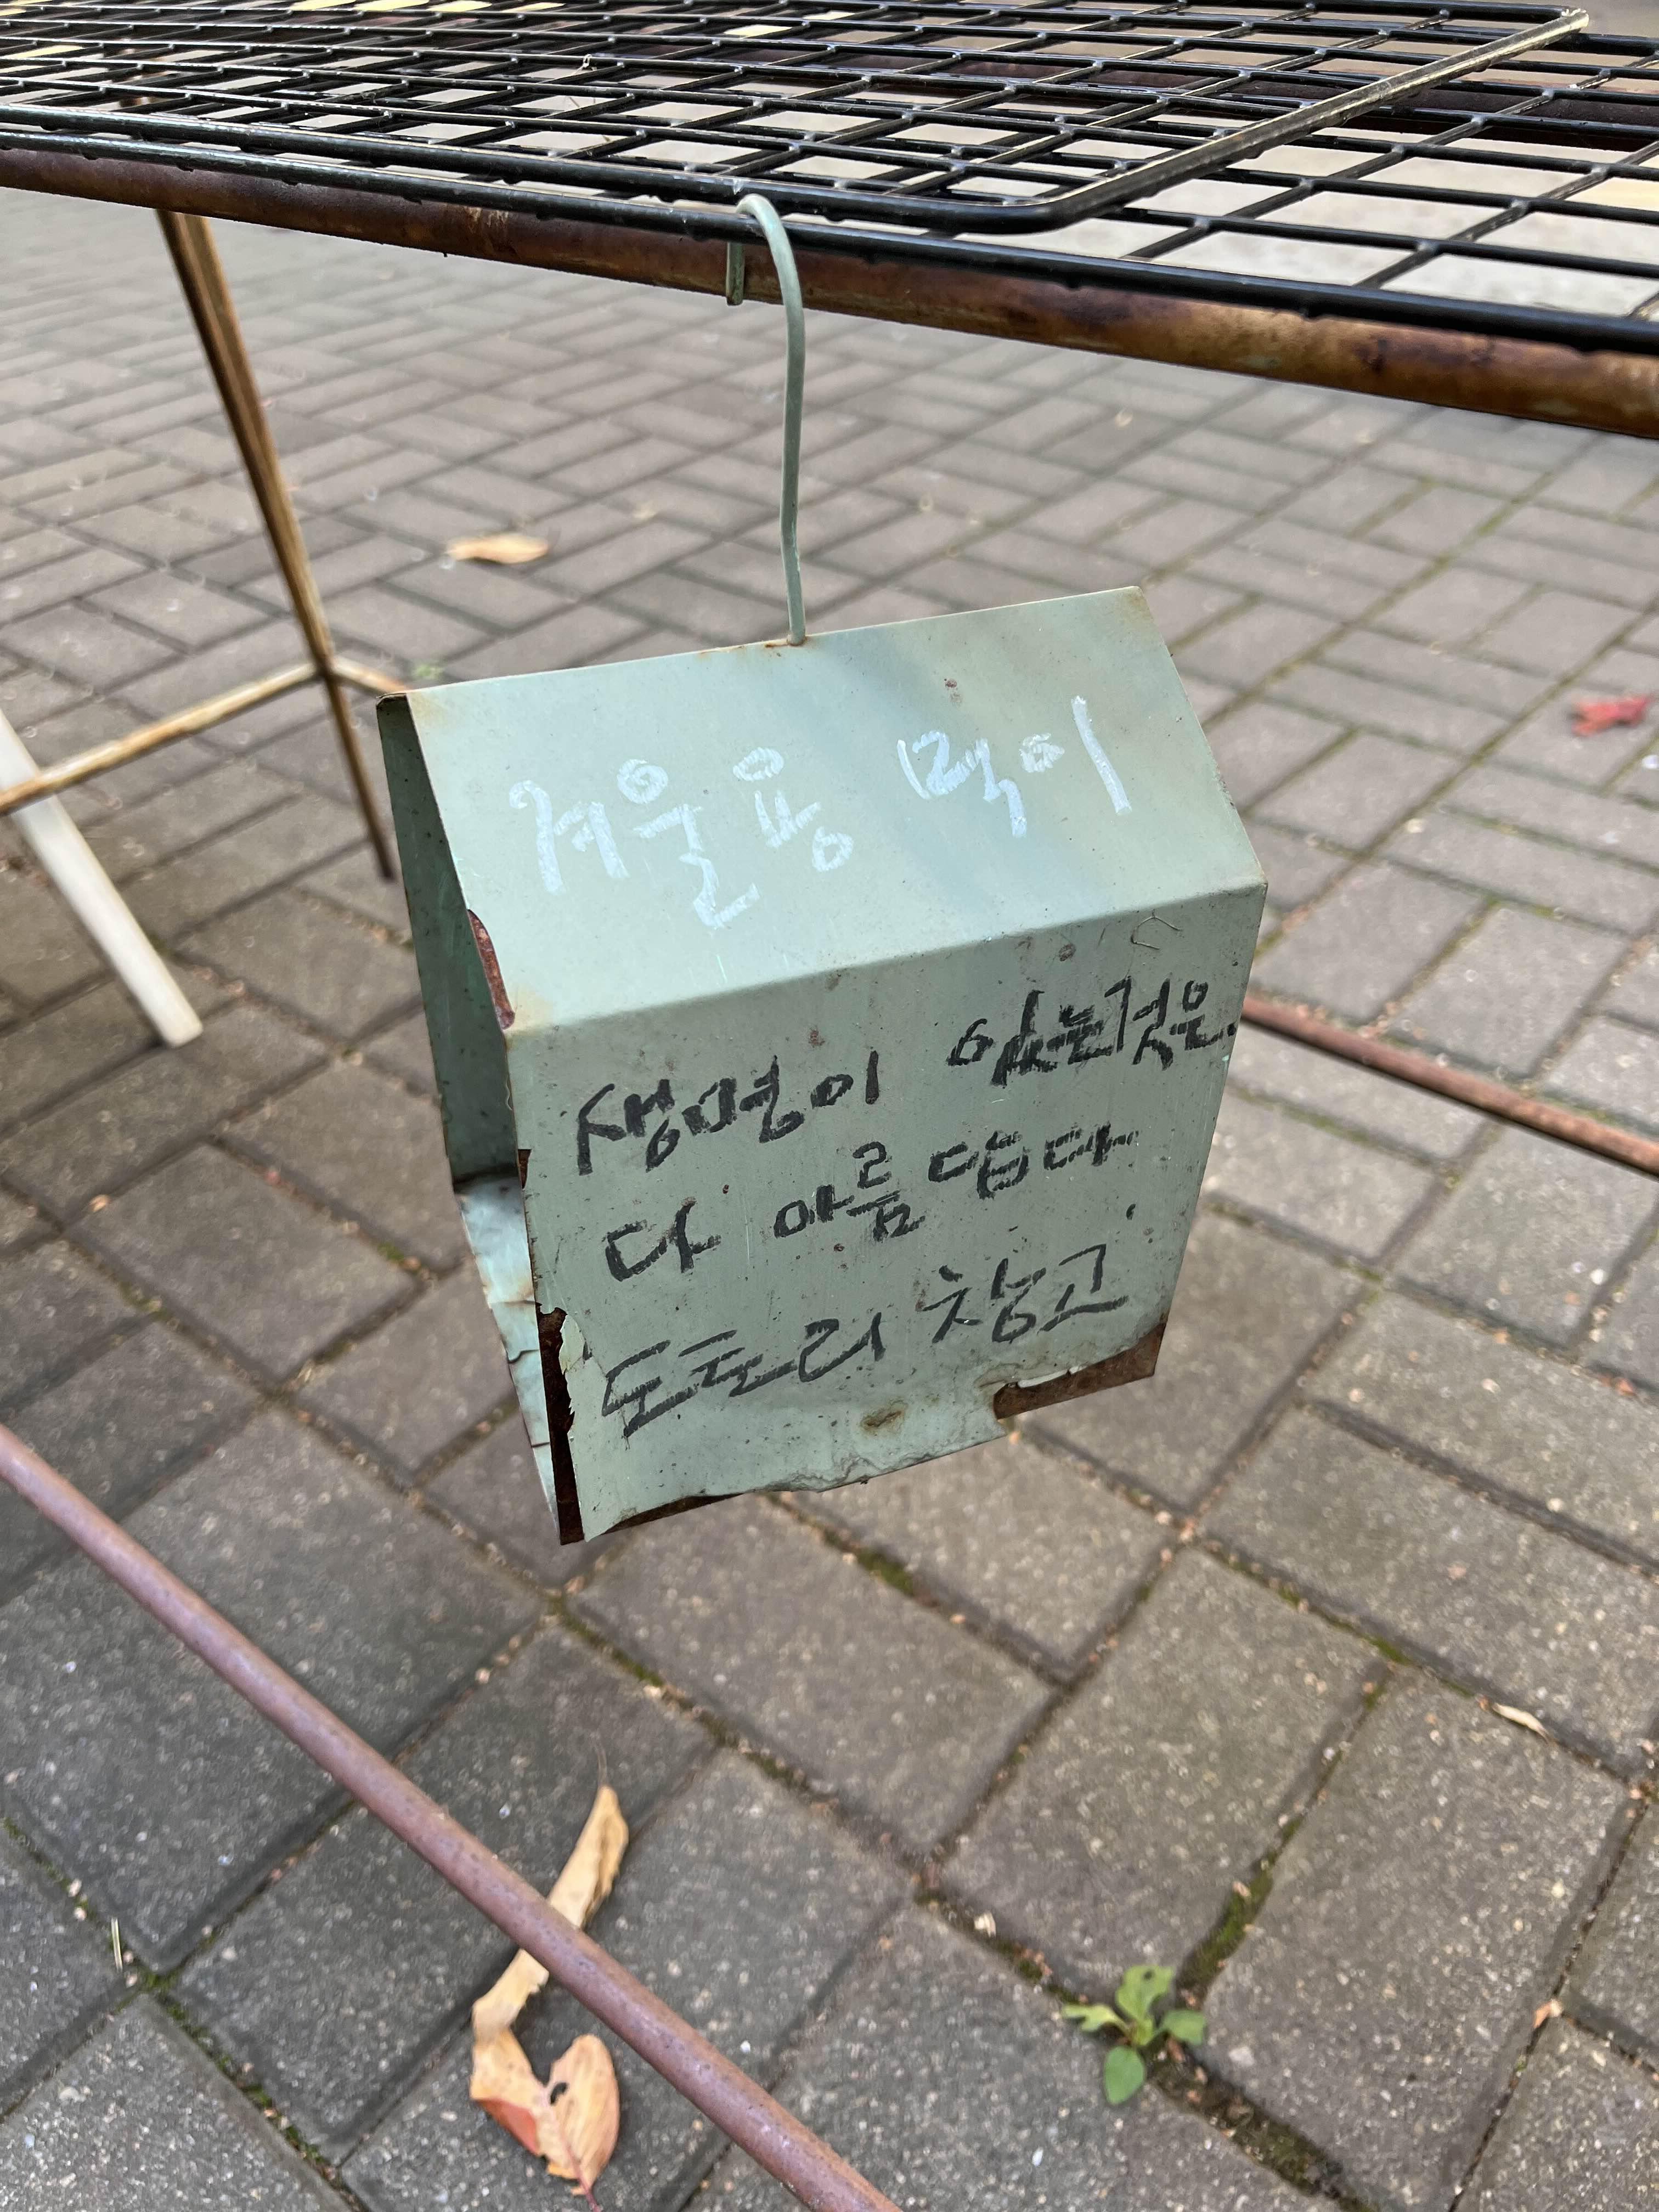 겨울용 먹이
생명이 있는것은
다 아름답다
도토리 창고